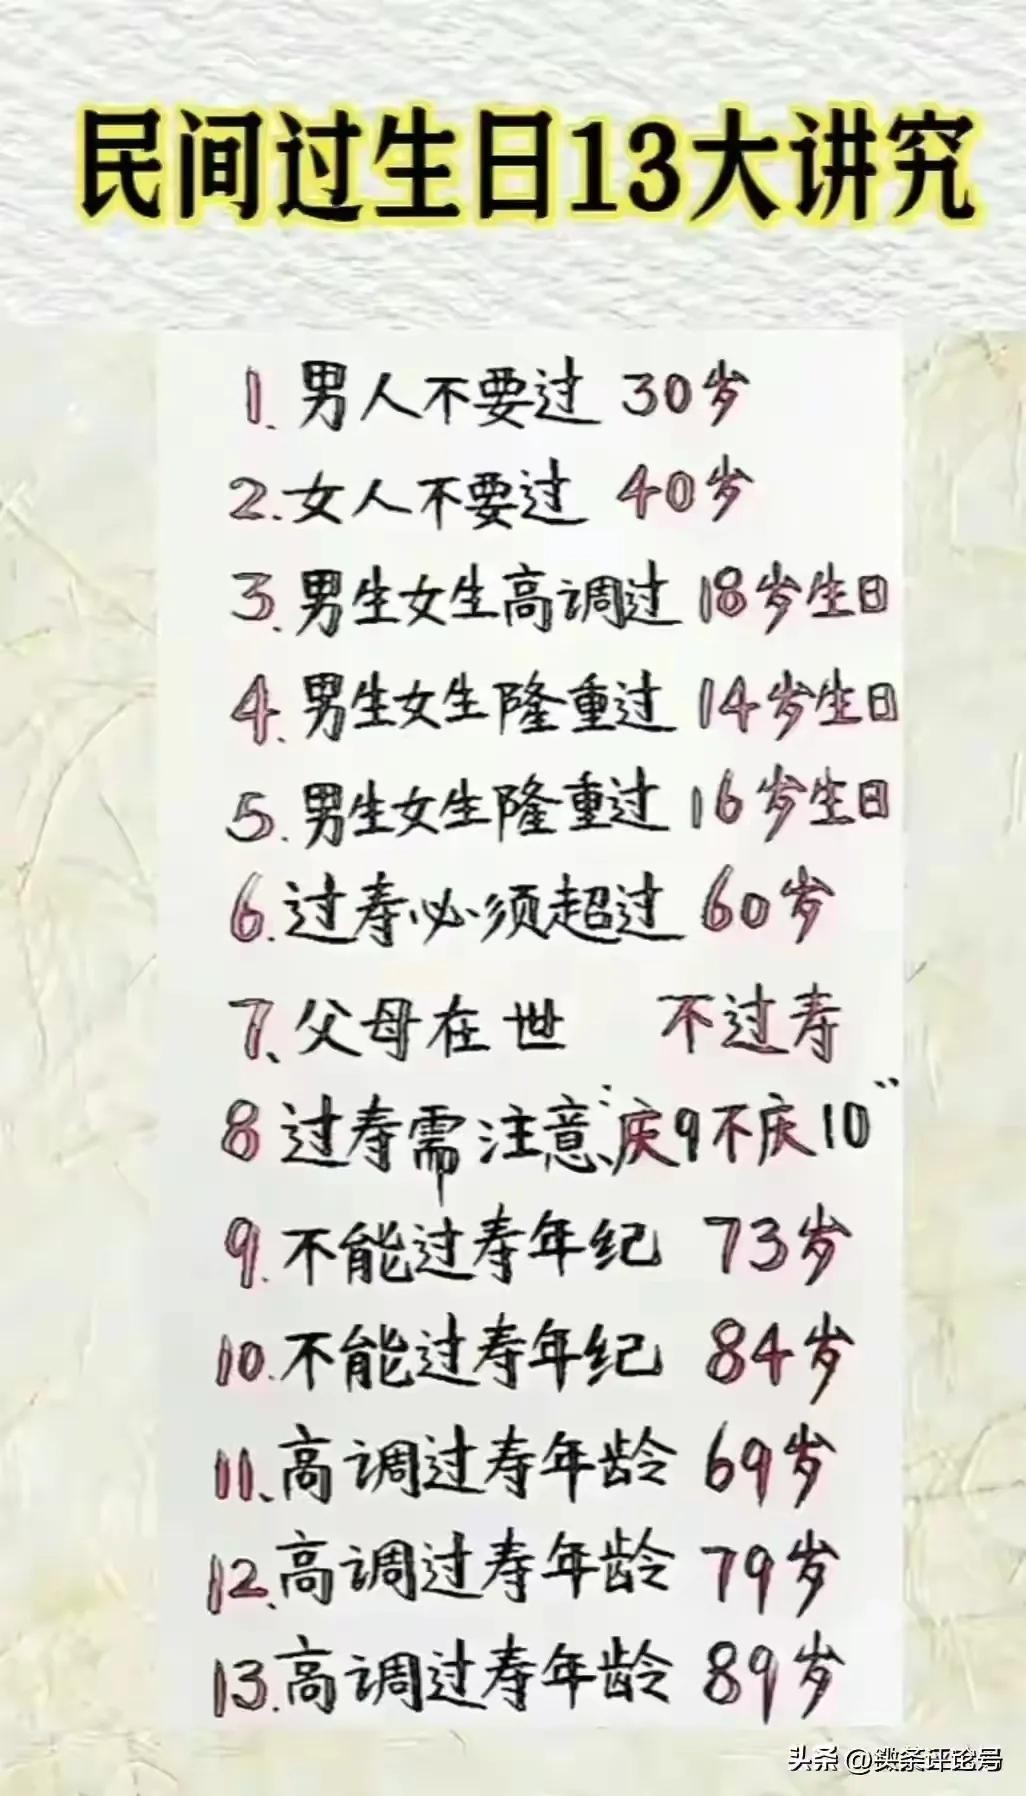 民间过生日13大讲究
1、男人不要过 30岁
2.女人不要过 40岁
3、男生女生高调过 18岁生日
4、男生女生隆重过 14岁生日
5.男生女生隆重过 16岁生日
6.过寿必须超过 60岁
7、父母在世 不过寿
8 过寿需注意"庆9不庆10"
9.不能过寿年纪 73岁
10.不能过寿年纪 84岁
11、高调过寿年龄 69岁
12.高调过寿年龄 79岁
13.高调过寿年龄 89岁
头条 @微条评论号